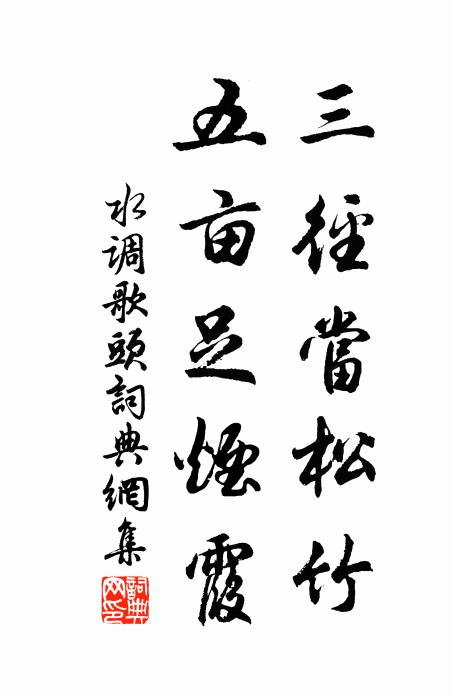 三徑當松竹
五亩足煙霞
水调歌頭詞典網集
詞典
网印